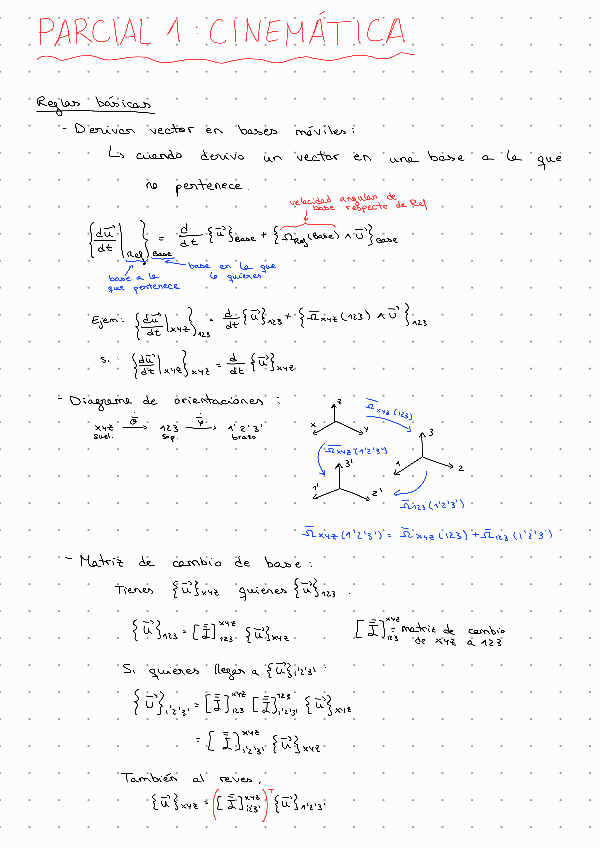 PARCIAL 1 : CINEMÁTICA
Reglas básicas
- Derivar vector en bases móviles:
↳ cuando derivo un vector en una base a la que
no pertenece.
velocidad angular de
base respecto de Ref
{du⃗/dt|Ref}Base = d/dt {u⃗}Base + {Ω̅Ref(Base) ∧ u⃗}Base
base a la
que pertenece
base en la que
lo quieres
Ejem: {du⃗/dt|xyz}123 = d/dt {u⃗}123 + {Ω̅xyz(123) ∧ u⃗}123
Si: {du⃗/dt|xyz}xyz = d/dt {u⃗}xyz
- Diagrama de orientaciones :
xyz →(θ̇) 123 →(φ̇) 1'2'3'
suel. sop. brazo
z x y Ω̅xyz(123)
3 1 2
Ω̅xyz(1'2'3')
3' 1' 2'
Ω̅123(1'2'3')
Ω̅xyz(1'2'3') = Ω̅xyz(123) + Ω̅123(1'2'3')
- Matriz de cambio de base:
Tienes {u⃗}xyz quieres {u⃗}123 .
{u⃗}123 = [I̿]xyz123 {u⃗}xyz
[I̿]xyz123 = matriz de cambio
de xyz a 123
Si quieres llegar a {u⃗}1'2'3' :
{u⃗}1'2'3' = [I̿]xyz123 [I̿]1231'2'3' {u⃗}xyz
= [I̿]xyz1'2'3' {u⃗}xyz
También al reves.
{u⃗}xyz = ([I̿]xyz1'2'3')T {u⃗}1'2'3'